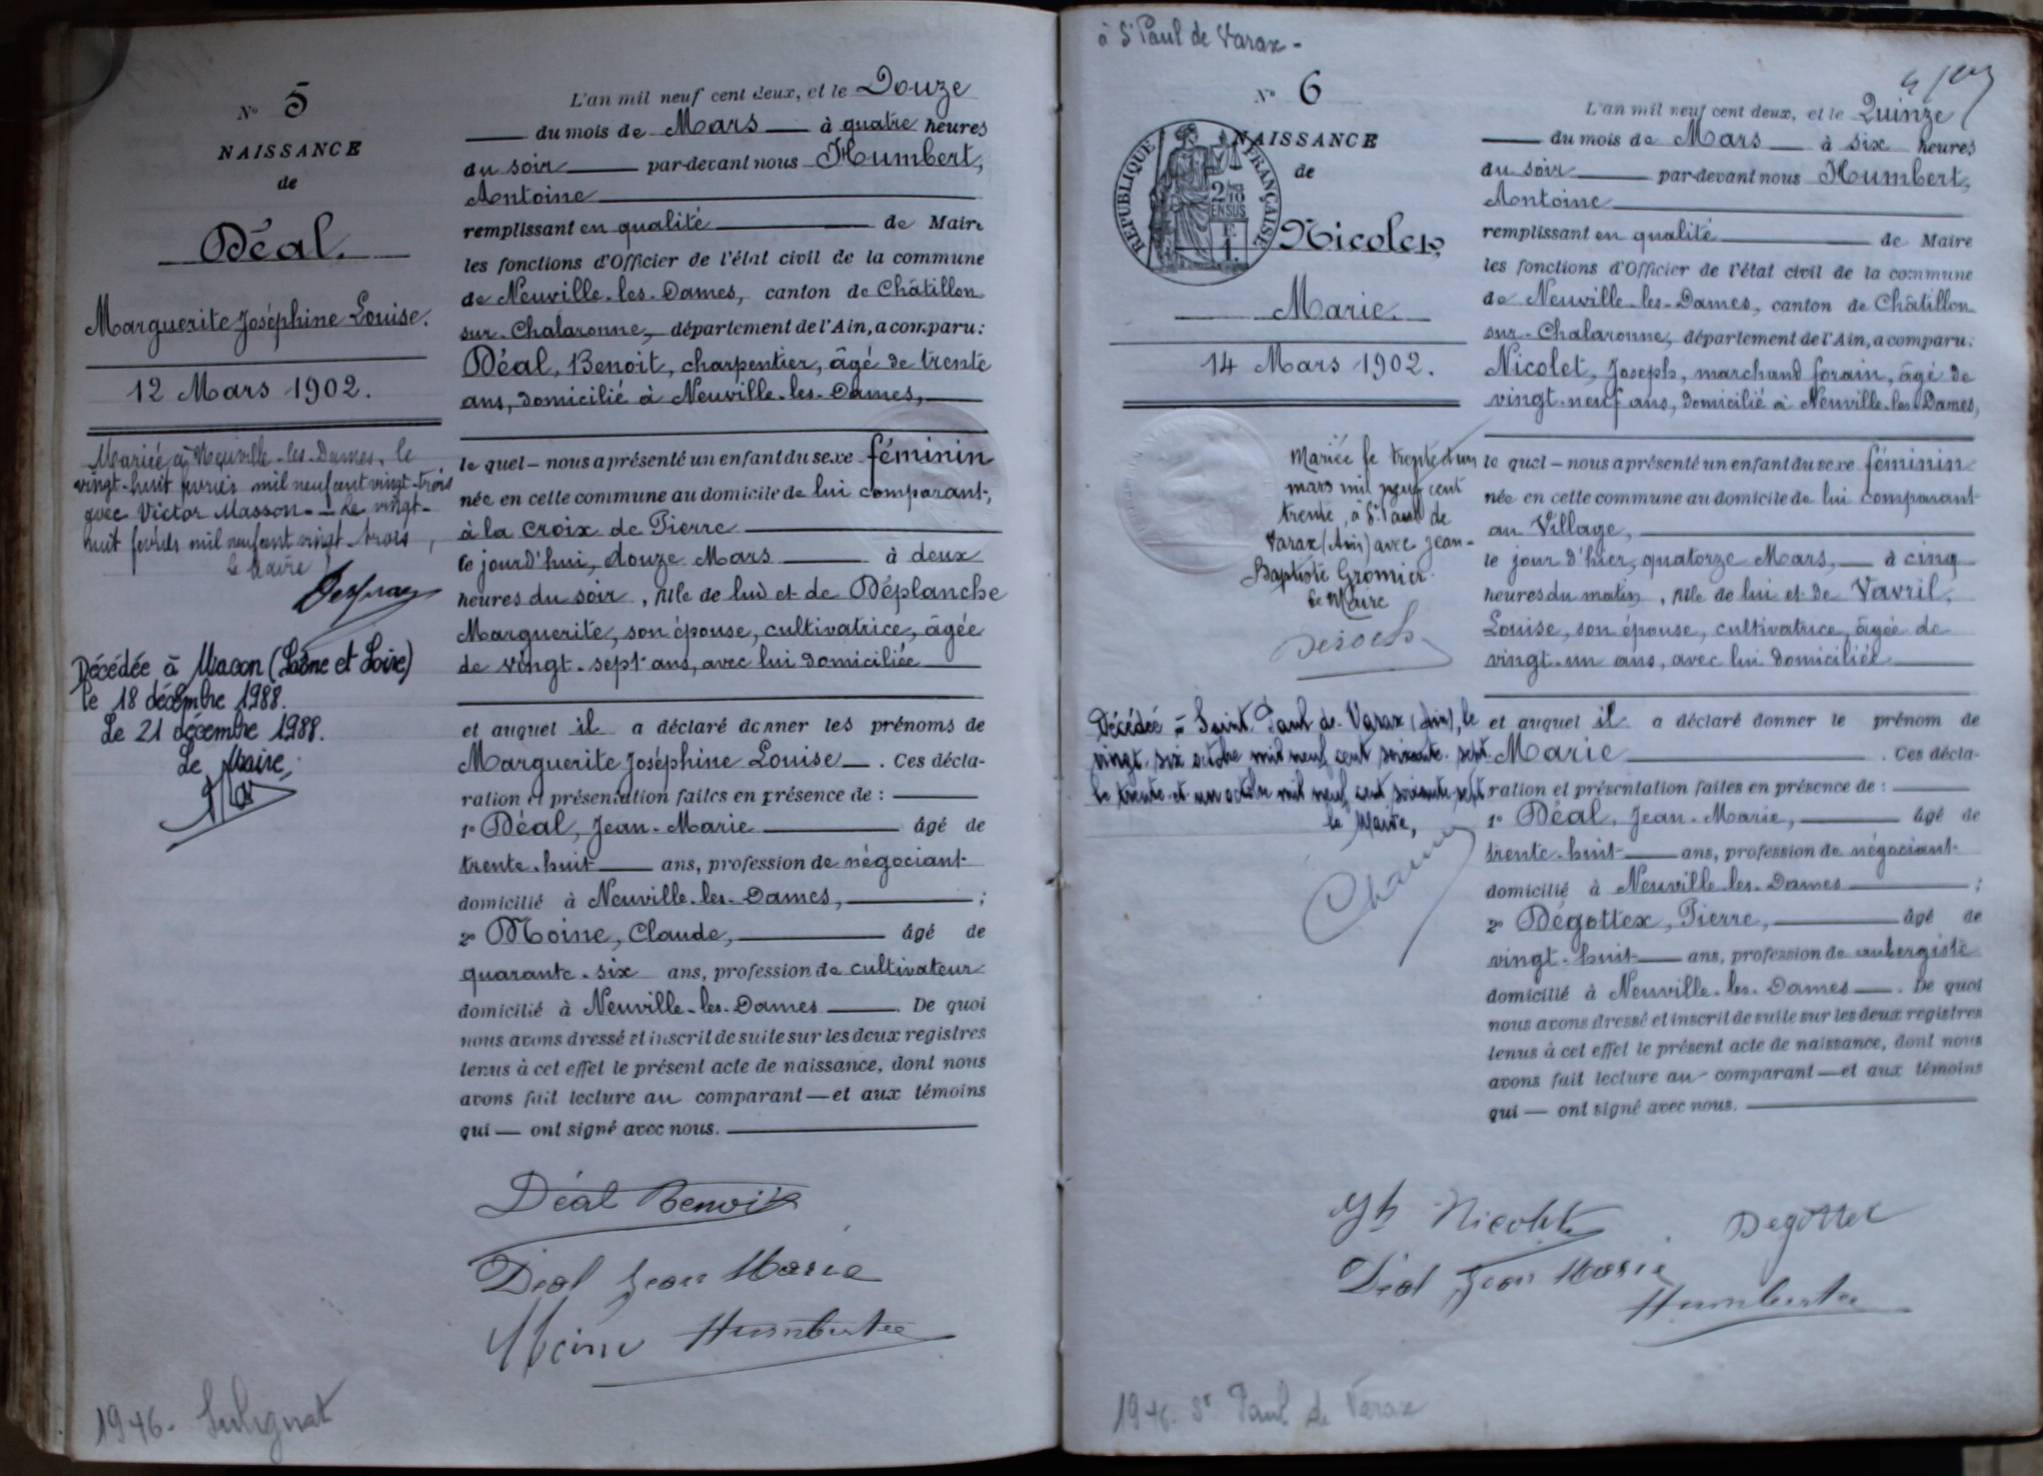 N° 5
NAISSANCE
de
Déal.
Marguerite Joséphine Louise.
12 Mars 1902.
Mariée à Neuville-les-Dames, le
vingt-huit février mil neuf cent vingt-trois
avec Victor Masson. — Le vingt-
huit février mil neuf cent vingt-trois,
Le Maire
Décédée à Macon (Saône et Loire)
le 18 décembre 1988.
Le 21 décembre 1988.
Le Maire,
L'an mil neuf cent deux, et le Douze
du mois de Mars — à quatre heures
du soir — par-devant nous Humbert,
Antoine
remplissant en qualité — de Maire
les fonctions d'Officier de l'état civil de la commune
de Neuville-les-Dames, canton de Châtillon
sur-Chalaronne, département de l'Ain, a comparu:
Déal, Benoit, charpentier, âgé de trente
ans, domicilié à Neuville-les-Dames,
le quel — nous a présenté un enfant du sexe féminin
née en cette commune au domicile de lui comparant,
à la Croix de Pierre
le jourd'hui, douze Mars — à deux
heures du soir, fille de lui et de Déplanche
Marguerite, son épouse, cultivatrice, âgée
de vingt-sept ans, avec lui domiciliée
et auquel il a déclaré donner les prénoms de
Marguerite Joséphine Louise — . Ces décla-
ration et présentation faites en présence de :
1° Déal, Jean-Marie — âgé de
trente-huit — ans, profession de négociant
domicilié à Neuville-les-Dames, — ;
2° Moine, Claude, — âgé de
quarante-six ans, profession de cultivateur
domicilié à Neuville-les-Dames — . De quoi
nous avons dressé et inscrit de suite sur les deux registres
tenus à cet effet le présent acte de naissance, dont nous
avons fait lecture au comparant — et aux témoins
qui — ont signé avec nous.
Déal Benoit
Déal Jean Marie
Moine Humbert
1946. Sulignat
à St Paul de Varax -
N° 6
NAISSANCE
de
RÉPUBLIQUE FRANÇAISE
Nicolet,
Marie
14 Mars 1902.
Mariée le trente et un
mars mil neuf cent
trente, à St Paul de
Varax (Ain) avec Jean-
Baptiste Gromier.
Le Maire
Décédée à Saint Paul de Varax (Ain), le
vingt-six octobre mil neuf cent soixante-sept.
le trente-et-un octobre mil neuf cent soixante sept
le Maire,
L'an mil neuf cent deux, et le Quinze
du mois de Mars — à six heures
du soir — par-devant nous Humbert,
Antoine
remplissant en qualité — de Maire
les fonctions d'Officier de l'état civil de la commune
de Neuville-les-Dames, canton de Châtillon
sur-Chalaronne, département de l'Ain, a comparu:
Nicolet, Joseph, marchand forain, âgé de
vingt-neuf ans, domicilié à Neuville-les-Dames,
le quel — nous a présenté un enfant du sexe féminin
née en cette commune au domicile de lui comparant
au Village,
le jour d'hier, quatorze Mars, — à cinq
heures du matin, fille de lui et de Vavril,
Louise, son épouse, cultivatrice, âgée de
vingt-un ans, avec lui domiciliée
et auquel il a déclaré donner le prénom de
Marie — . Ces décla-
ration et présentation faites en présence de :
1° Déal, Jean-Marie, — âgé de
trente-huit — ans, profession de négociant
domicilié à Neuville-les-Dames — ;
2° Dégottex, Pierre, — âgé de
vingt-huit — ans, profession de aubergiste
domicilié à Neuville-les-Dames — . De quoi
nous avons dressé et inscrit de suite sur les deux registres
tenus à cet effet le présent acte de naissance, dont nous
avons fait lecture au comparant — et aux témoins
qui — ont signé avec nous.
Nicolet Degottex
Déal Jean Marie
Humbert
1946. St Paul de Varax